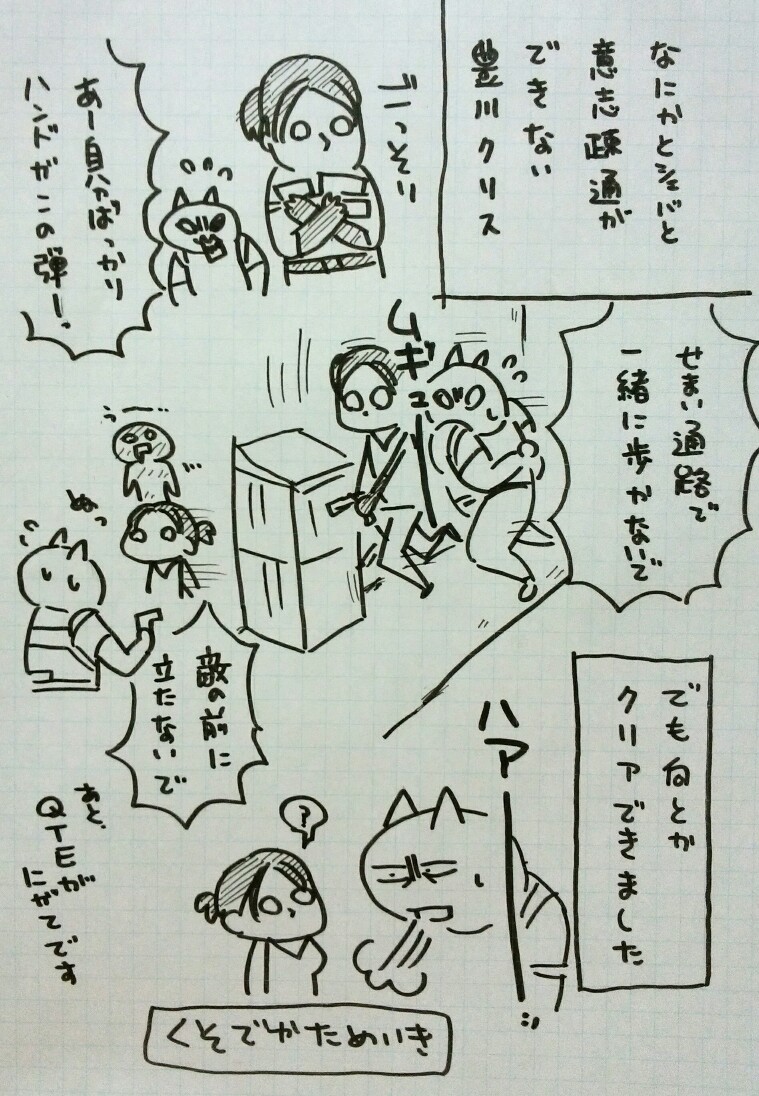 なにかとシェバと
意志疎通が
できない
豊川クリス
ごっそり
あー自分ばっかり
ハンドガンの弾ー!
せまい通路で
一緒に歩かないで
ムギュー
うー…
ぬっ
敵の前に
立たないで
でも何とか
クリアできました
ハアーッ
?
くそでかためいき
あと、
QTEが
にがてです